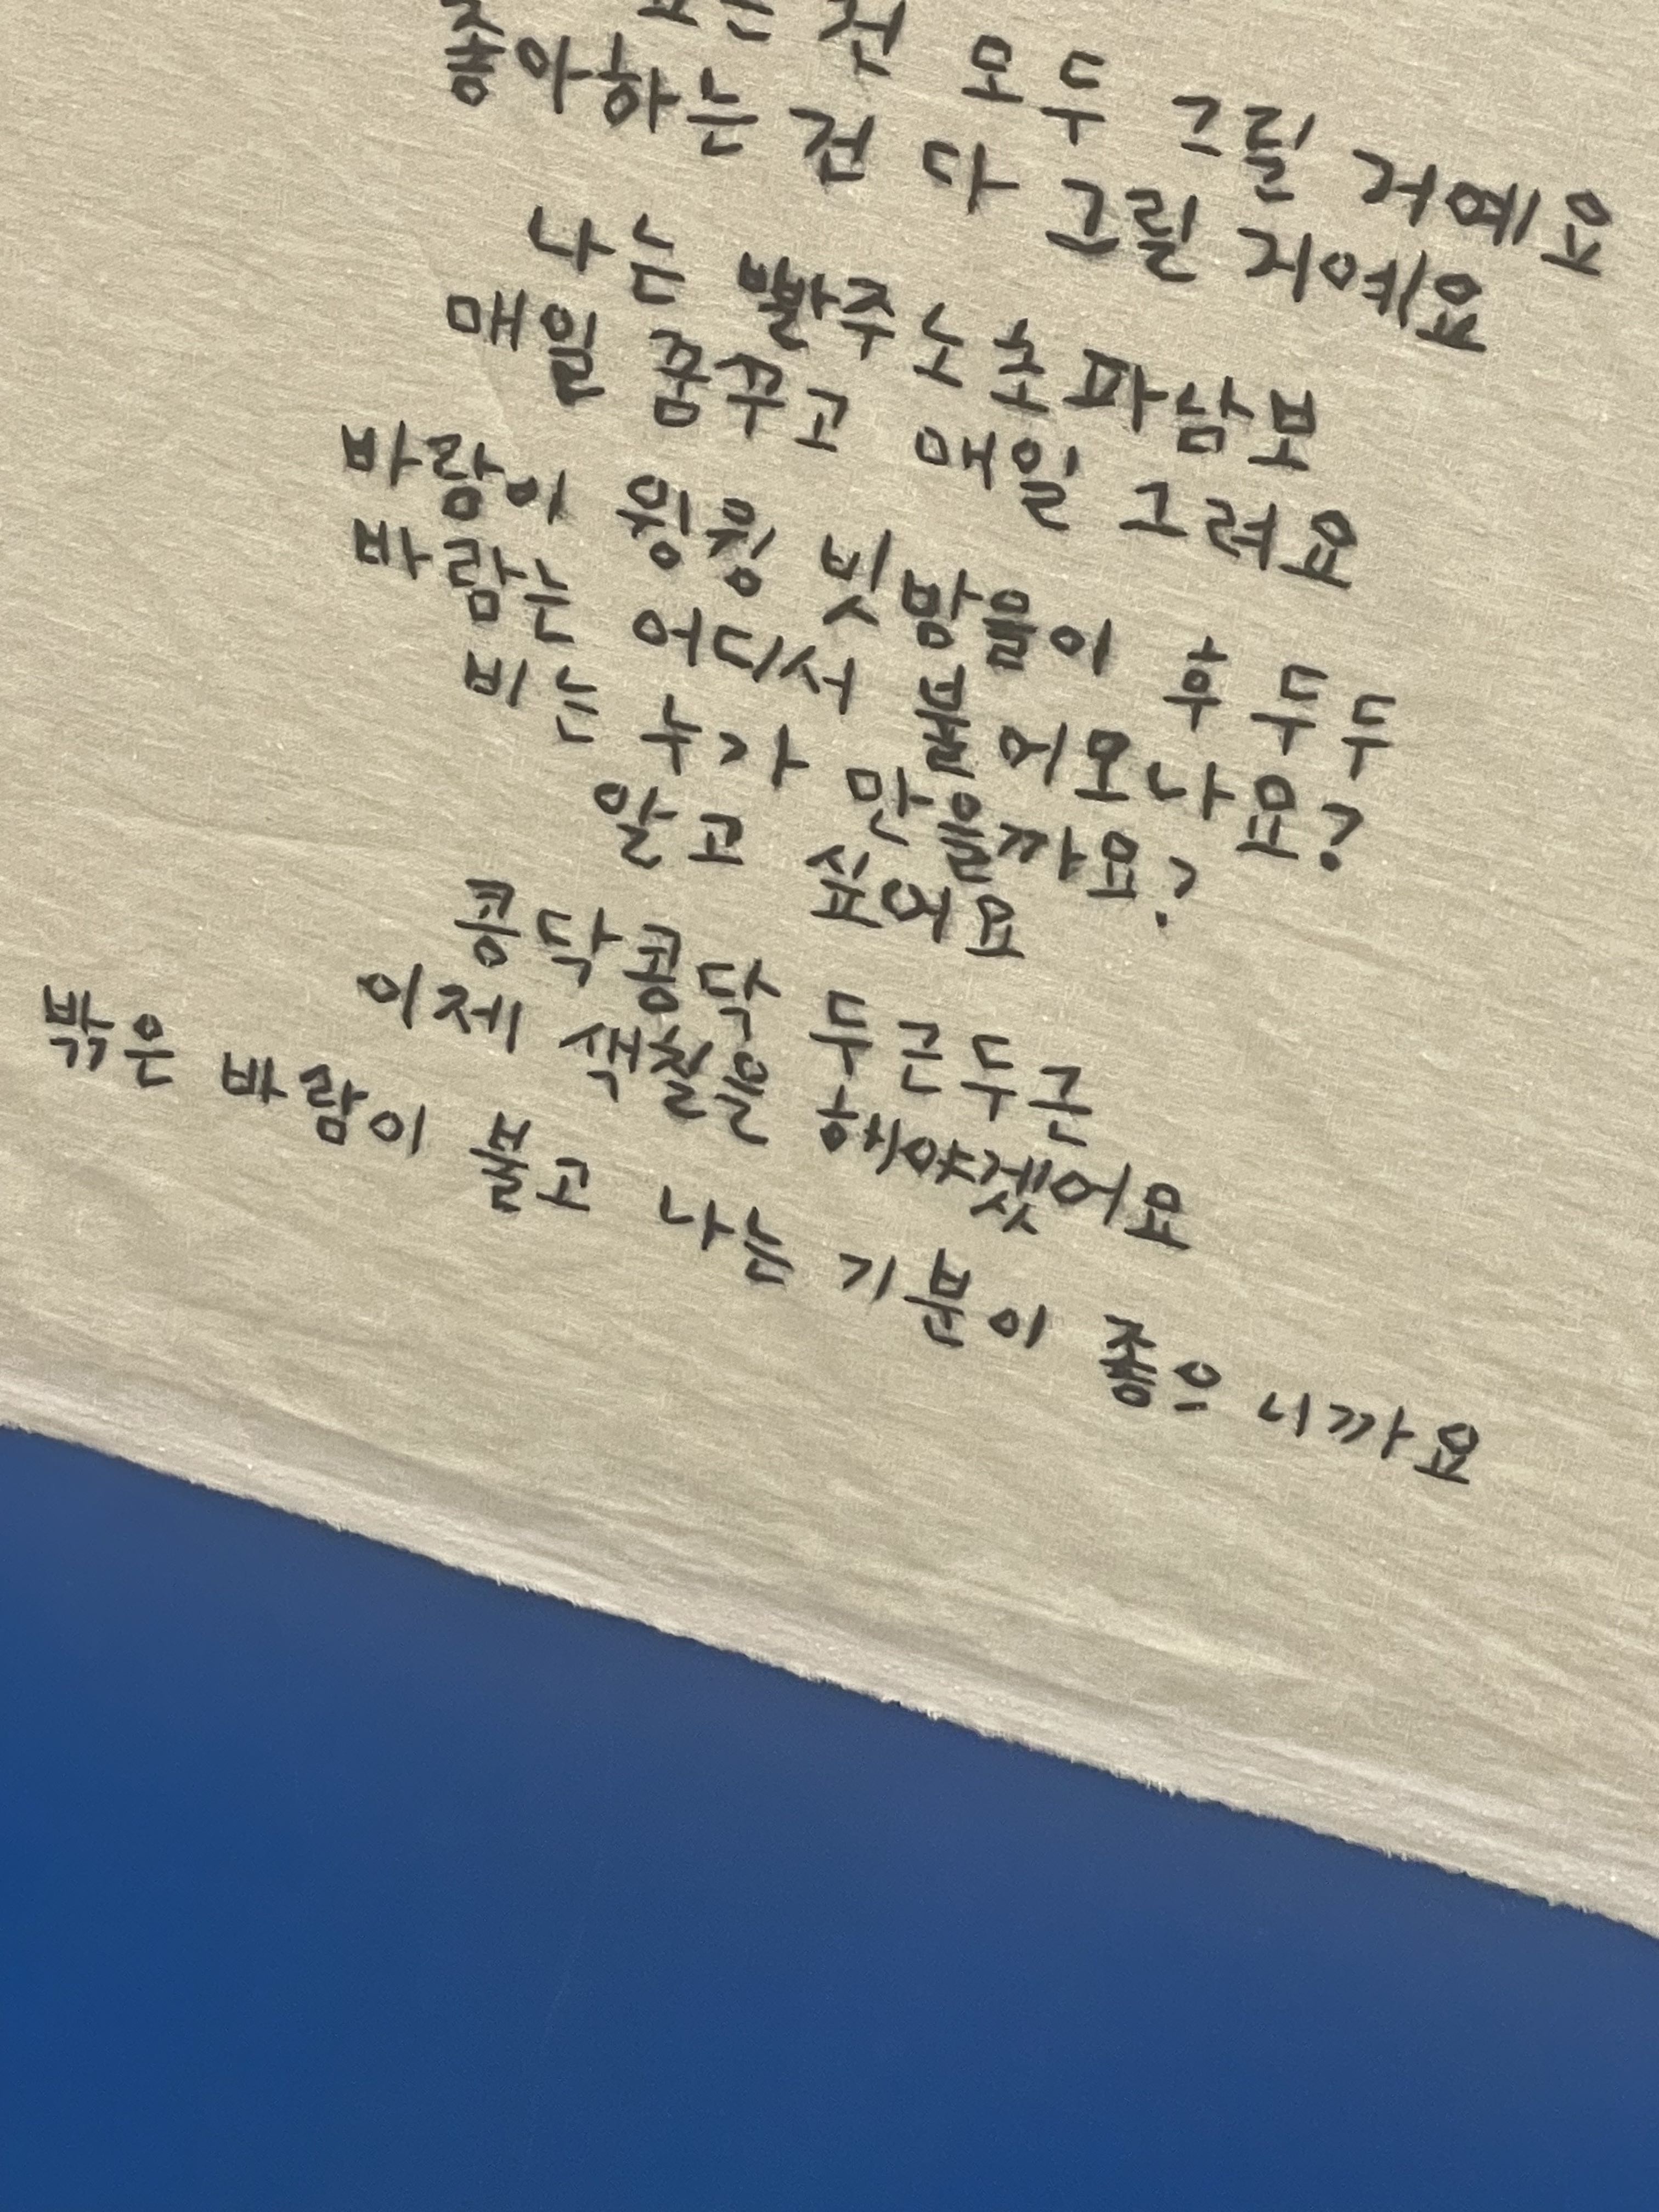 는 건 모두 그릴 거예요
좋아하는 건 다 그릴 거예요
나는 빨주노초파남보
매일 꿈꾸고 매일 그려요
바람이 윙칭 빗방울이 후두두
바람는 어디서 불어오나요?
비는 누가 만들까요?
알고 싶어요
콩닥콩닥 두근두근
이제 색칠을 해야겠어요
밖은 바람이 불고 나는 기분이 좋으니까요